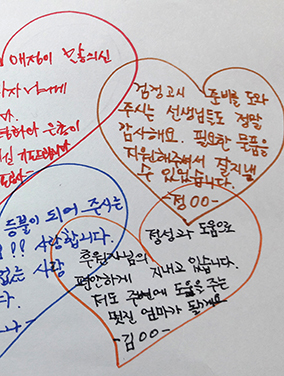 애정이 많으신
검정고시 준비를 도와
주시는 선생님들도 정말
감사해요. 필요한 물품을
지원해주셔서 잘지낼
수 있었습니다.
-정OO-
등불이 되어 주시는
!! 사랑합니다.
없는 사랑
다.
나-
정성과 도움으로
후원자님의
편안하게 지내고 있습니다.
저도 주변에 도움을 주는
멋진 엄마가 될게요
-김OO-